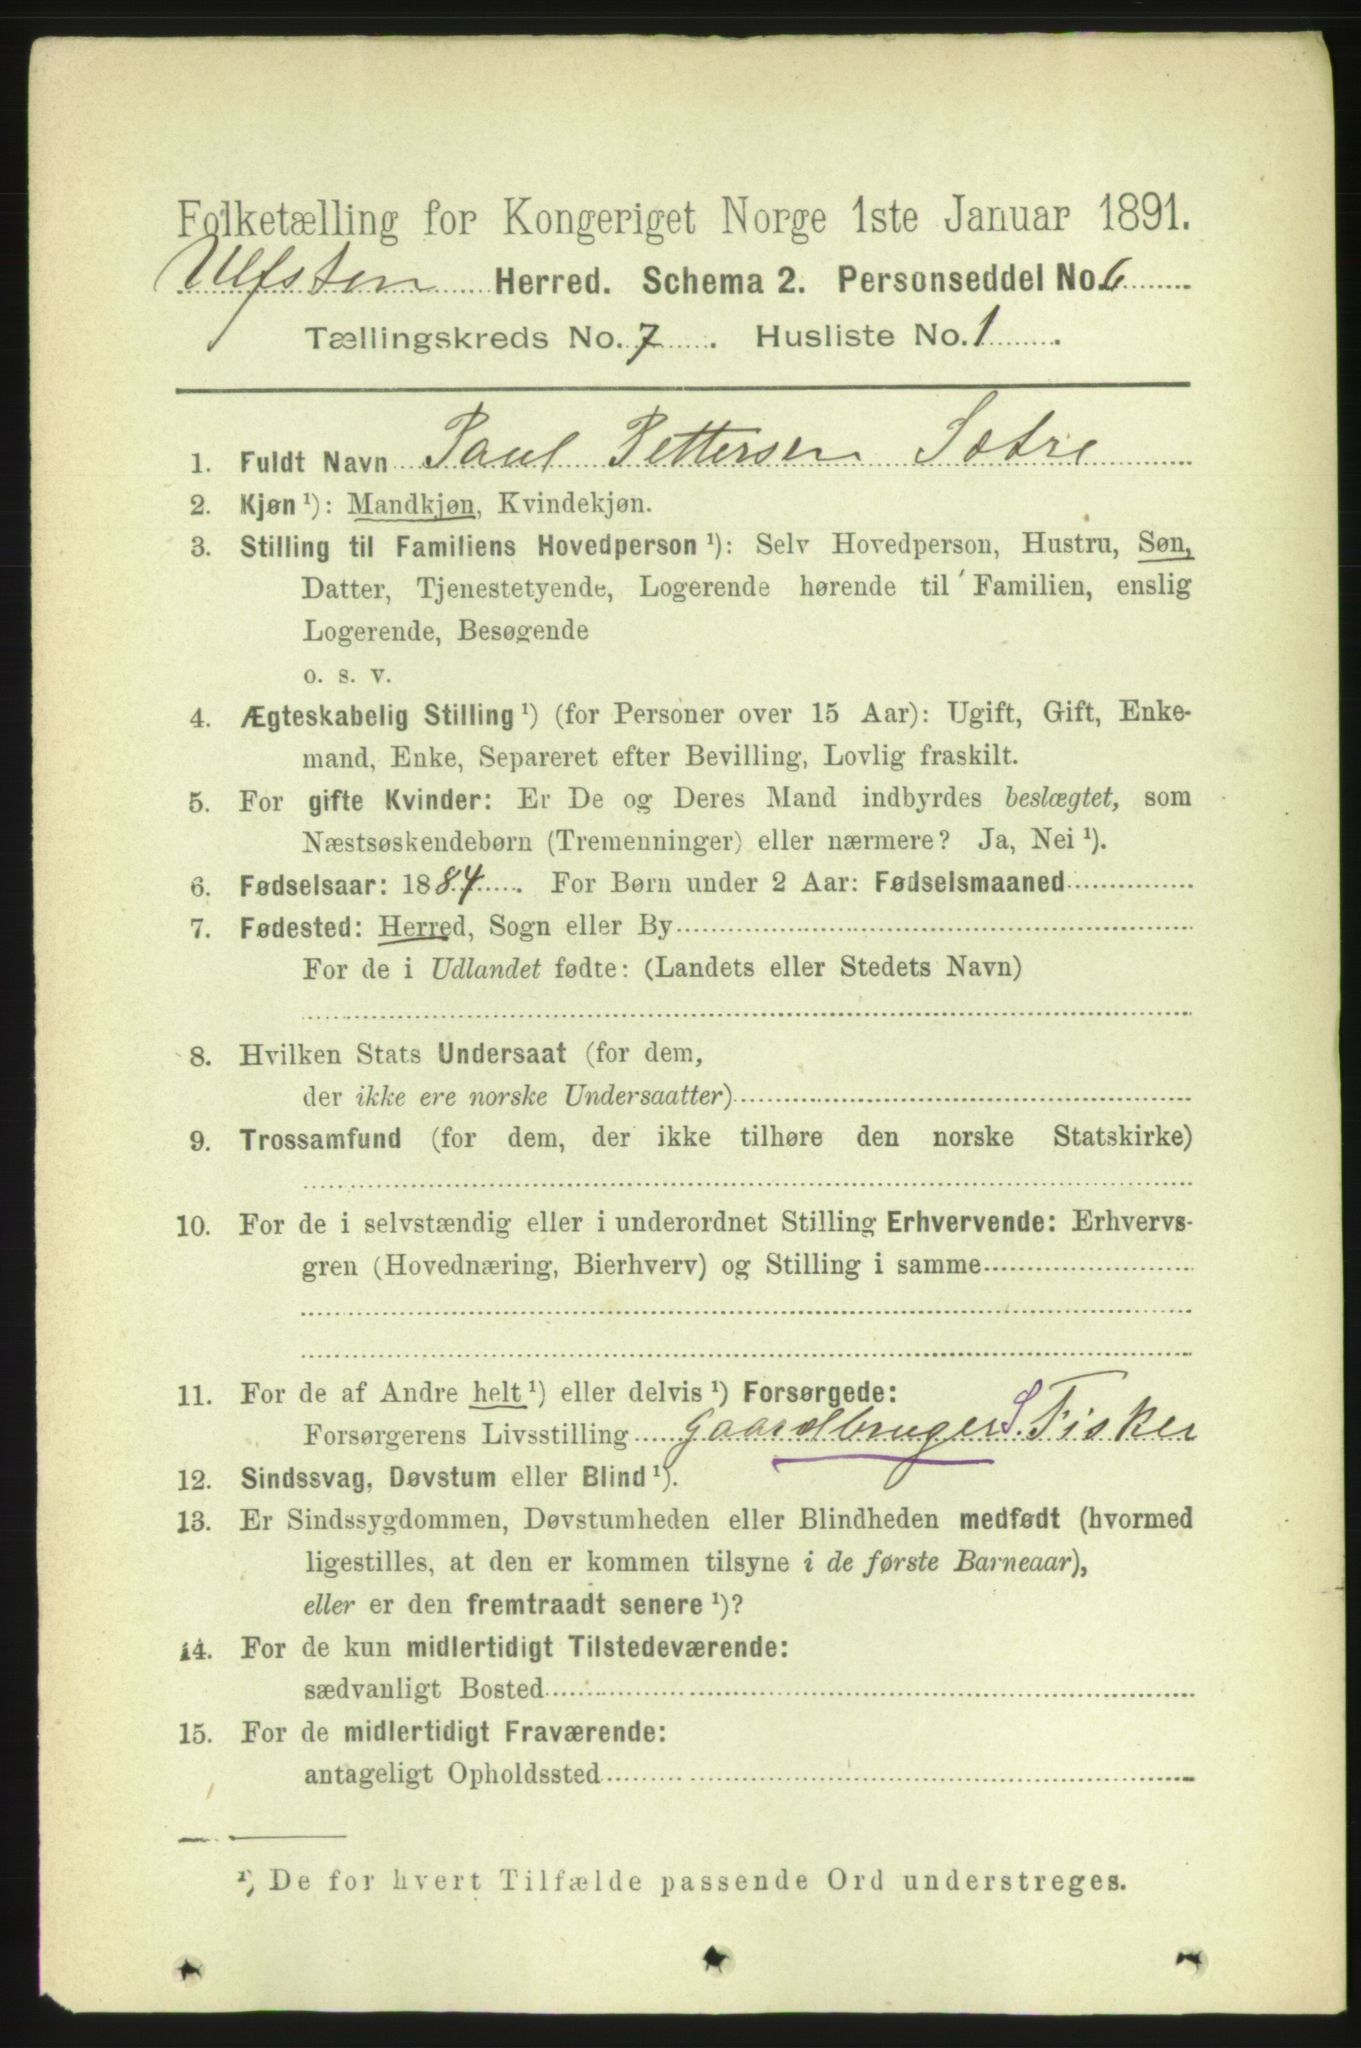 Folketælling for Kongeriget Norge 1ste Januar 1891.
Ulfsten Herred. Schema 2. Personseddel No. 6
Tællingskreds No. 7. Husliste No. 1.
1. Fuldt Navn Paul Pettersen Sætre
2. Kjøn ¹): Mandkjøn, Kvindekjøn.
3. Stilling til Familiens Hovedperson ¹): Selv Hovedperson, Hustru, Søn,
Datter, Tjenestetyende, Logerende hørende til Familien, enslig
Logerende, Besøgende
o. s. v.
4. Ægteskabelig Stilling ¹) (for Personer over 15 Aar): Ugift, Gift, Enke-
mand, Enke, Separeret efter Bevilling, Lovlig fraskilt.
5. For gifte Kvinder: Er De og Deres Mand indbyrdes beslægtet, som
Næstsøskendebørn (Tremenninger) eller nærmere? Ja, Nei ¹).
6. Fødselsaar: 1884. For Børn under 2 Aar: Fødselsmaaned
7. Fødested: Herred, Sogn eller By
For de i Udlandet fødte: (Landets eller Stedets Navn)
8. Hvilken Stats Undersaat (for dem,
der ikke ere norske Undersaatter)
9. Trossamfund (for dem, der ikke tilhøre den norske Statskirke)
10. For de i selvstændig eller i underordnet Stilling Erhvervende: Erhvervs-
gren (Hovednæring, Bierhverv) og Stilling i samme
11. For de af Andre helt ¹) eller delvis ¹) Forsørgede:
Forsørgerens Livsstilling Gaardbruger S. Fisker
12. Sindssvag, Døvstum eller Blind ¹).
13. Er Sindssygdommen, Døvstumheden eller Blindheden medfødt (hvormed
ligestilles, at den er kommen tilsyne i de første Barneaar),
eller er den fremtraadt senere ¹)?
14. For de kun midlertidigt Tilstedeværende:
sædvanligt Bosted
15. For de midlertidigt Fraværende:
antageligt Opholdssted
¹) De for hvert Tilfælde passende Ord understreges.